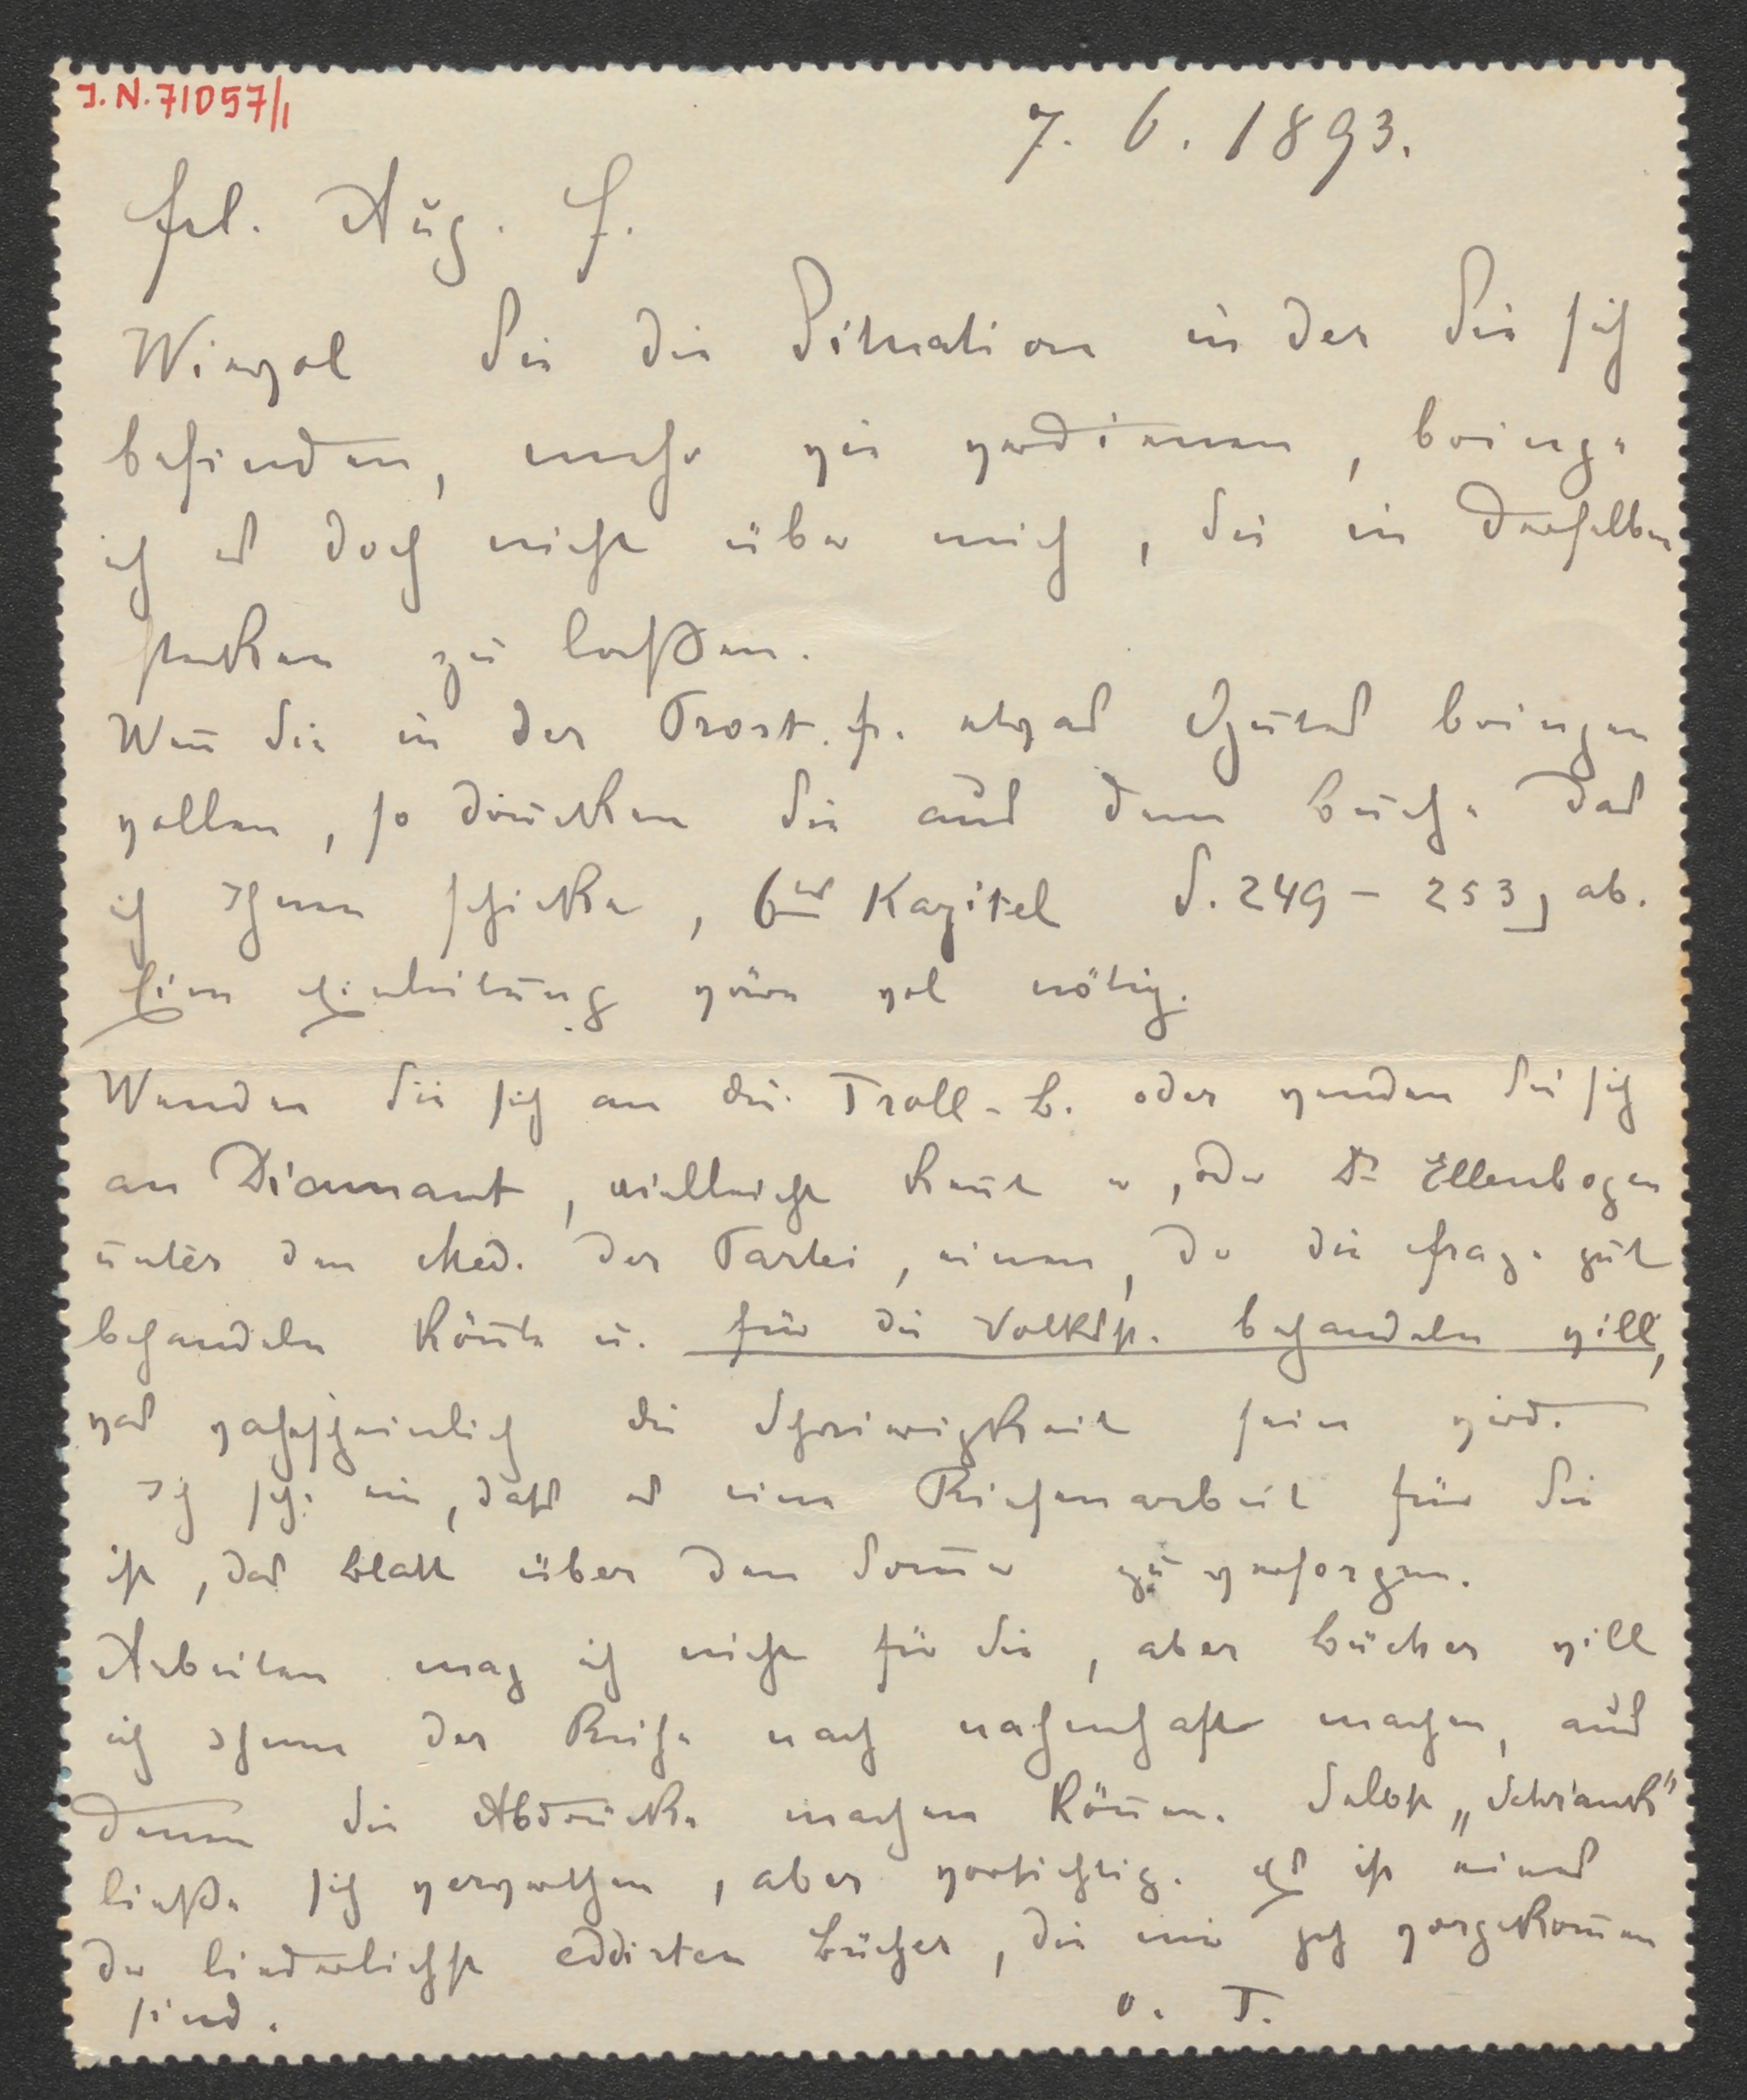 J.N. 71057/1
7. 6. 1893.
Frl. Aug. F.
Wiewol Sie die Situation in der Sie sich
befinden, mehr wie verdienen, bringe
ich es doch nicht über mich, Sie in derselben
stecken zu laßen.
Weñ Sie in der Prost. fr. etwas Gutes bringen
wollen, so drucken Sie aus dem Buche das
ich Ihnen schicke, 6tes Kapitel S. 249 – 253, ab.
Eine Einleitung wäre wol nötig.
Wenden Sie sich an die Troll-B. oder wenden Sie sich
an Diamant, vielleicht keñt er, oder Dr Ellenbogen
unter den Med. der Partei, einen, der die Frage gut
behandeln köñte u. für die Volkstr. behandeln will,
was wahrscheinlich die Schwierigkeit sein wird.
Ich sehe ein, dass es eine Riesenarbeit für Sie
ist, das Blatt über den Som̄er zu versorgen.
Arbeiten mag ich nicht für Sie, aber Bücher will
ich Ihnen der Reihe nach nahmhaft machen, aus
denen Sie Abdrucke machen köñen. Selbst „Schrank"
ließe sich verwerthen, aber vorsichtig. Es ist eines
der liederlichst eddirten Bücher, die mir je vorgekom̄en
sind.
O. T.